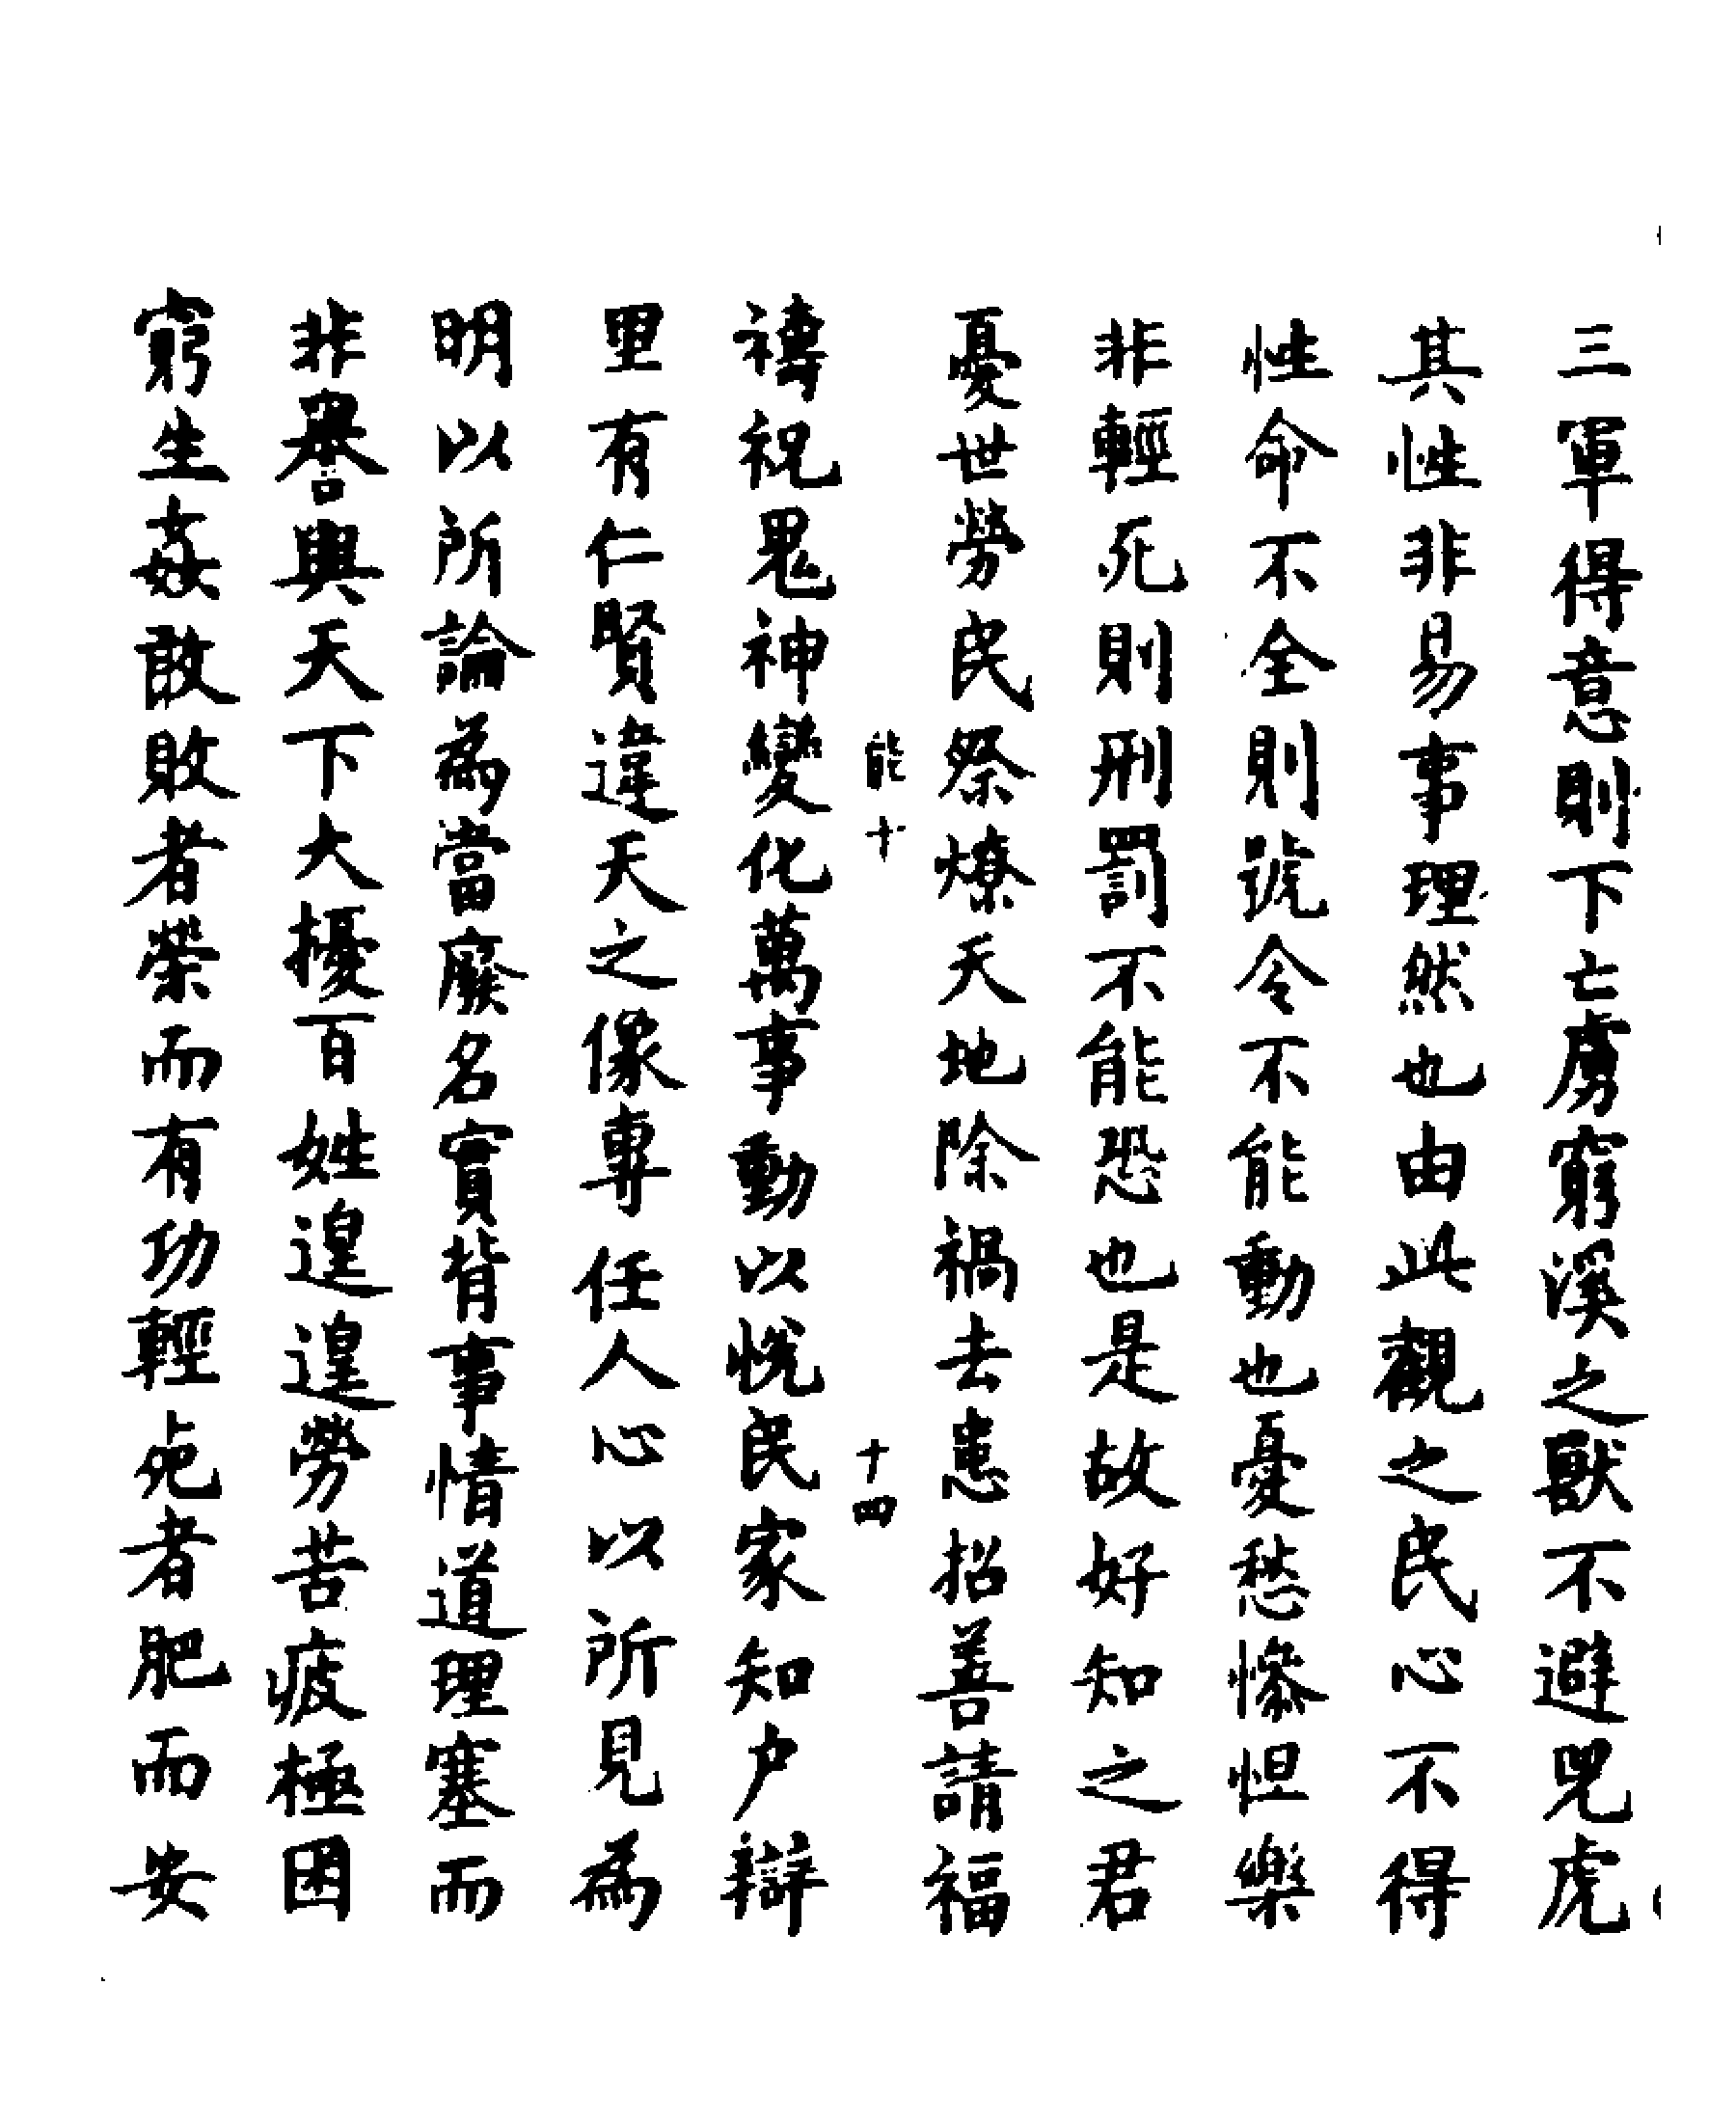 三軍得意則下亡虜窮溪之獸不避兕虎
其性非易事理然也由此觀之民心不得
性命不全則號令不能動也憂愁慘怛樂
非輕死則刑罰不能恐也是故好知之君
憂世勞民祭燎天地除禍去患招善請福
能十 十四
禱祝鬼神變化萬事動以悅民家知户辯
里有仁賢違天之像專任人心以所見為
明以所論為當廢名實背事情道理塞而
非譽興天下大擾百姓遑遑勞苦疲極困
窮生姦敢敗者榮而有功輕死者肥而安